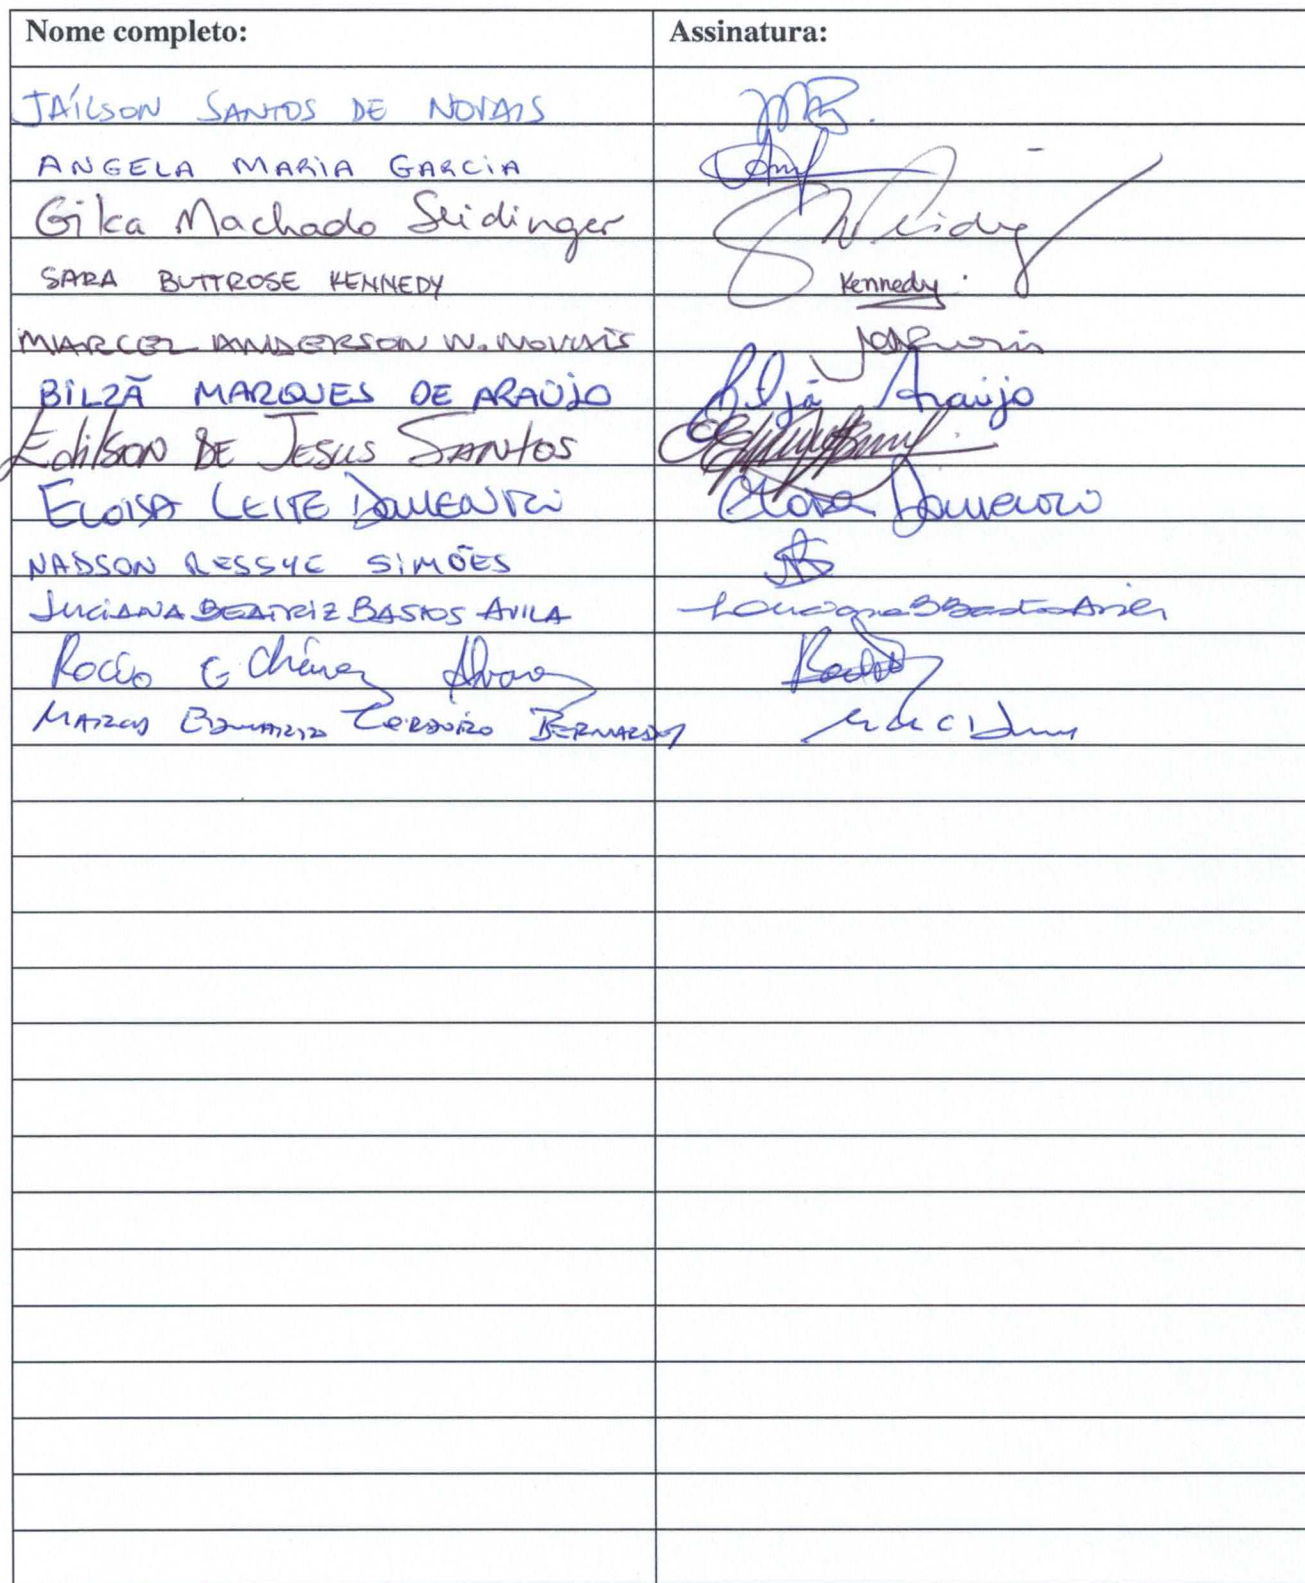 Nome completo: Assinatura:
JAÍLSON SANTOS DE NOVAIS
ANGELA MARIA GARCIA
Gilka Machado Seidinger
SARA BUTTROSE KENNEDY Kennedy
MARCEL ANDERSON W. NOVAIS
BILZÃ MARQUES DE ARAÚJO Bilzã Araújo
Edilson DE JESUS SANTOS
ELOISA LEITE DOMENICI Eloisa Domenici
NADSON RESSYÉ SIMÕES
LUCIANA BEATRIZ BASTOS AVILA
Rocío Chávez Alvarez
MARCOS EDUARDO CORDEIRO BERNARDES